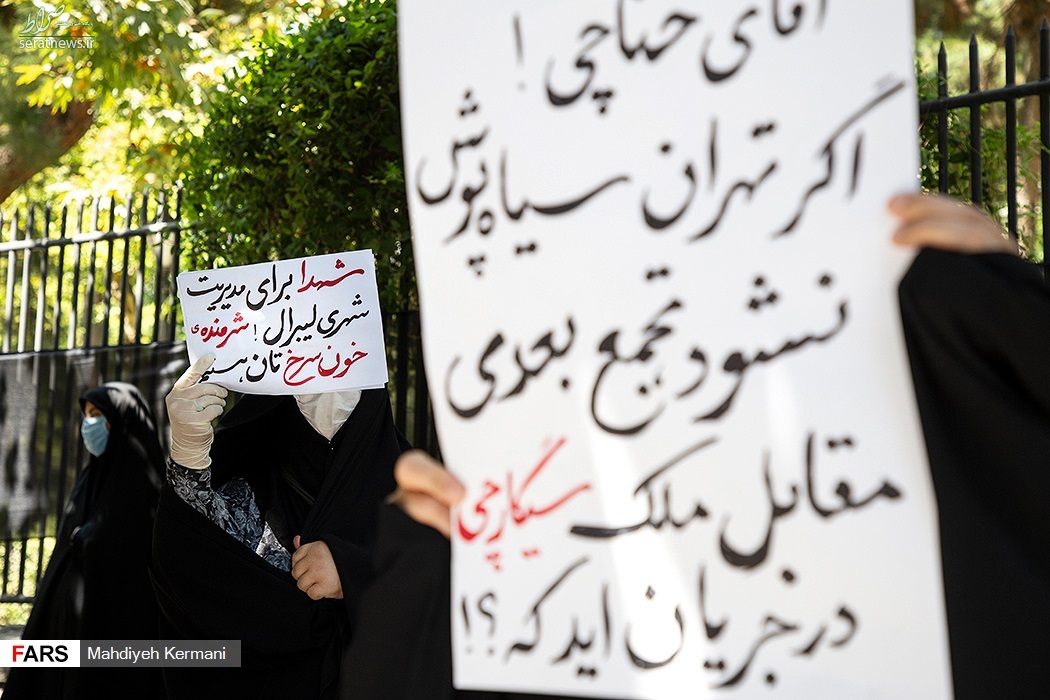 صراط
seratnews.ir
آقای حناچی!
اگر تهران سیاه‌پوش
نشود تجمع بعدی
مقابل ملک سیگارچی
در جریان اید که؟!
شهدا برای مدیریت
شهری لیبرال! شرمنده‌ی
خون سرخ تان هستیم
FARS
Mahdiyeh Kermani